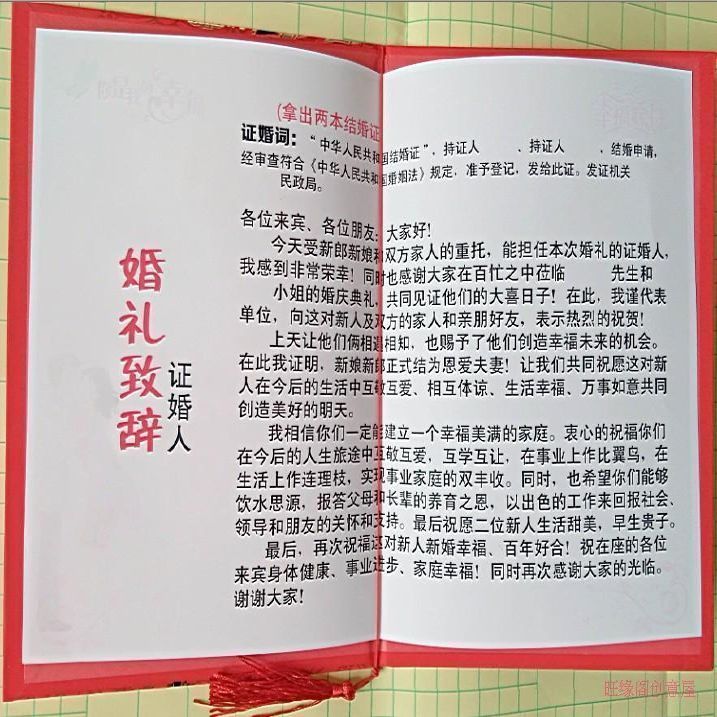 婚礼致辞
证婚人
(拿出两本结婚证
证婚词：“中华人民共和国结婚证”，持证人 、持证人 ，结婚申请，
经审查符合《中华人民共和国婚姻法》规定，准予登记，发给此证。发证机关
民政局。
各位来宾、各位朋友：大家好！
今天受新郎新娘和双方家人的重托，能担任本次婚礼的证婚人，
我感到非常荣幸！同时也感谢大家在百忙之中莅临 先生和
小姐的婚庆典礼，共同见证他们的大喜日子！在此，我谨代表
单位，向这对新人及双方的家人和亲朋好友，表示热烈的祝贺！
上天让他们俩相遇相知，也赐予了他们创造幸福未来的机会。
在此我证明，新娘新郎正式结为恩爱夫妻！让我们共同祝愿这对新
人在今后的生活中互敬互爱、相互体谅、生活幸福、万事如意共同
创造美好的明天。
我相信你们一定能建立一个幸福美满的家庭。衷心的祝福你们
在今后的人生旅途中互敬互爱，互学互让，在事业上作比翼鸟，在
生活上作连理枝，实现事业家庭的双丰收。同时，也希望你们能够
饮水思源，报答父母和长辈的养育之恩，以出色的工作来回报社会、
领导和朋友的关怀和支持。最后祝愿二位新人生活甜美，早生贵子。
最后，再次祝福这对新人新婚幸福、百年好合！祝在座的各位
来宾身体健康、事业进步、家庭幸福！同时再次感谢大家的光临。
谢谢大家！
旺缘阁创意屋